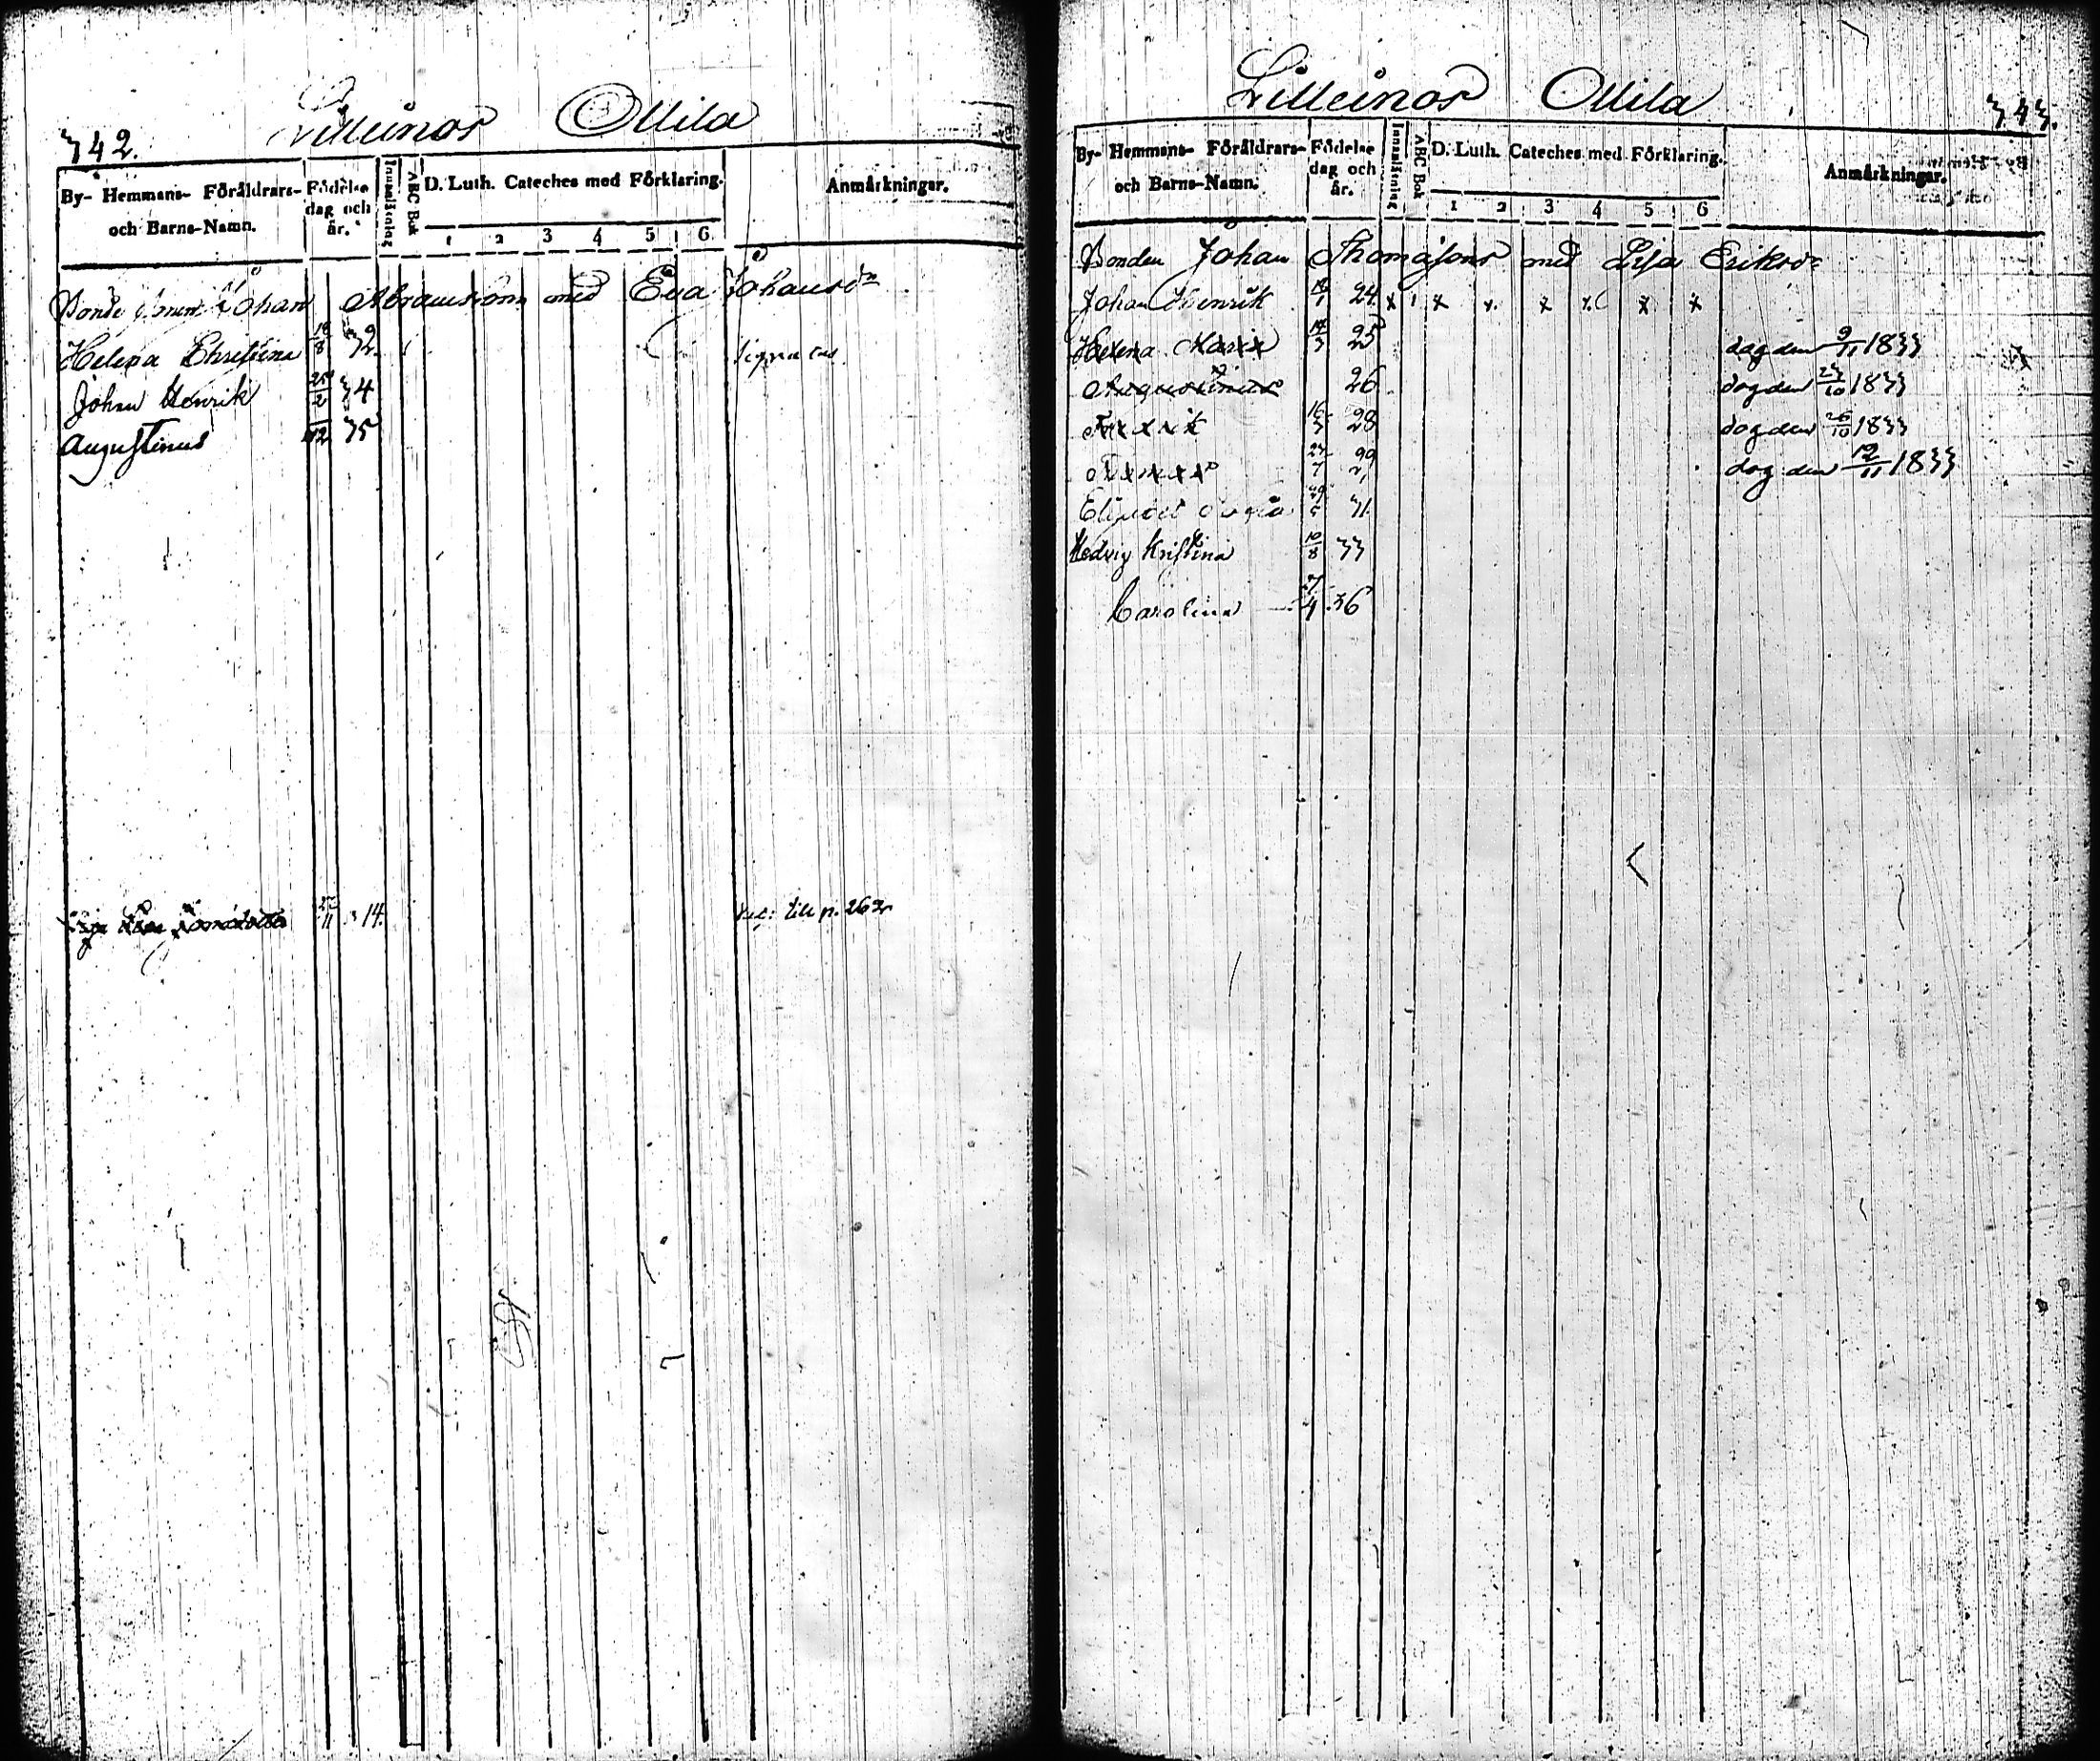 342.
Lilleinos Ollila
By- Hemmans- Föräldrars- och Barns-Namn. Födelse dag och år. Innanläsning ABC Bok D. Luth. Cateches med Förklaring. 1 2 3 4 5 6. Anmärkningar.
Johan Abramsson med Eva Johansdr
Helena Christina 18/8 32
Johan Henrik 25/2 34
Augustinus 12 35
11 14. till p. 262
343.
Lilleinos Ollila
By- Hemmans- Föräldrars- och Barns-Namn. Födelse dag och år. Innanläsning ABC Bok D. Luth. Cateches med Förklaring. 1 2 3 4 5 6 Anmärkningar.
Bonden Johan Thomasson med Lisa Eriksdr
Johan Henrik 24. x 1 x x x x x x
Helena Maria 25 dog den 9/11 1833
Augustinus 26 dog den 23/10 1833
16/3 28 dog den 26/10 1833
29 dog den 12/11 1833
31
Hedvig Kristina 10/8 33
Carolina 36